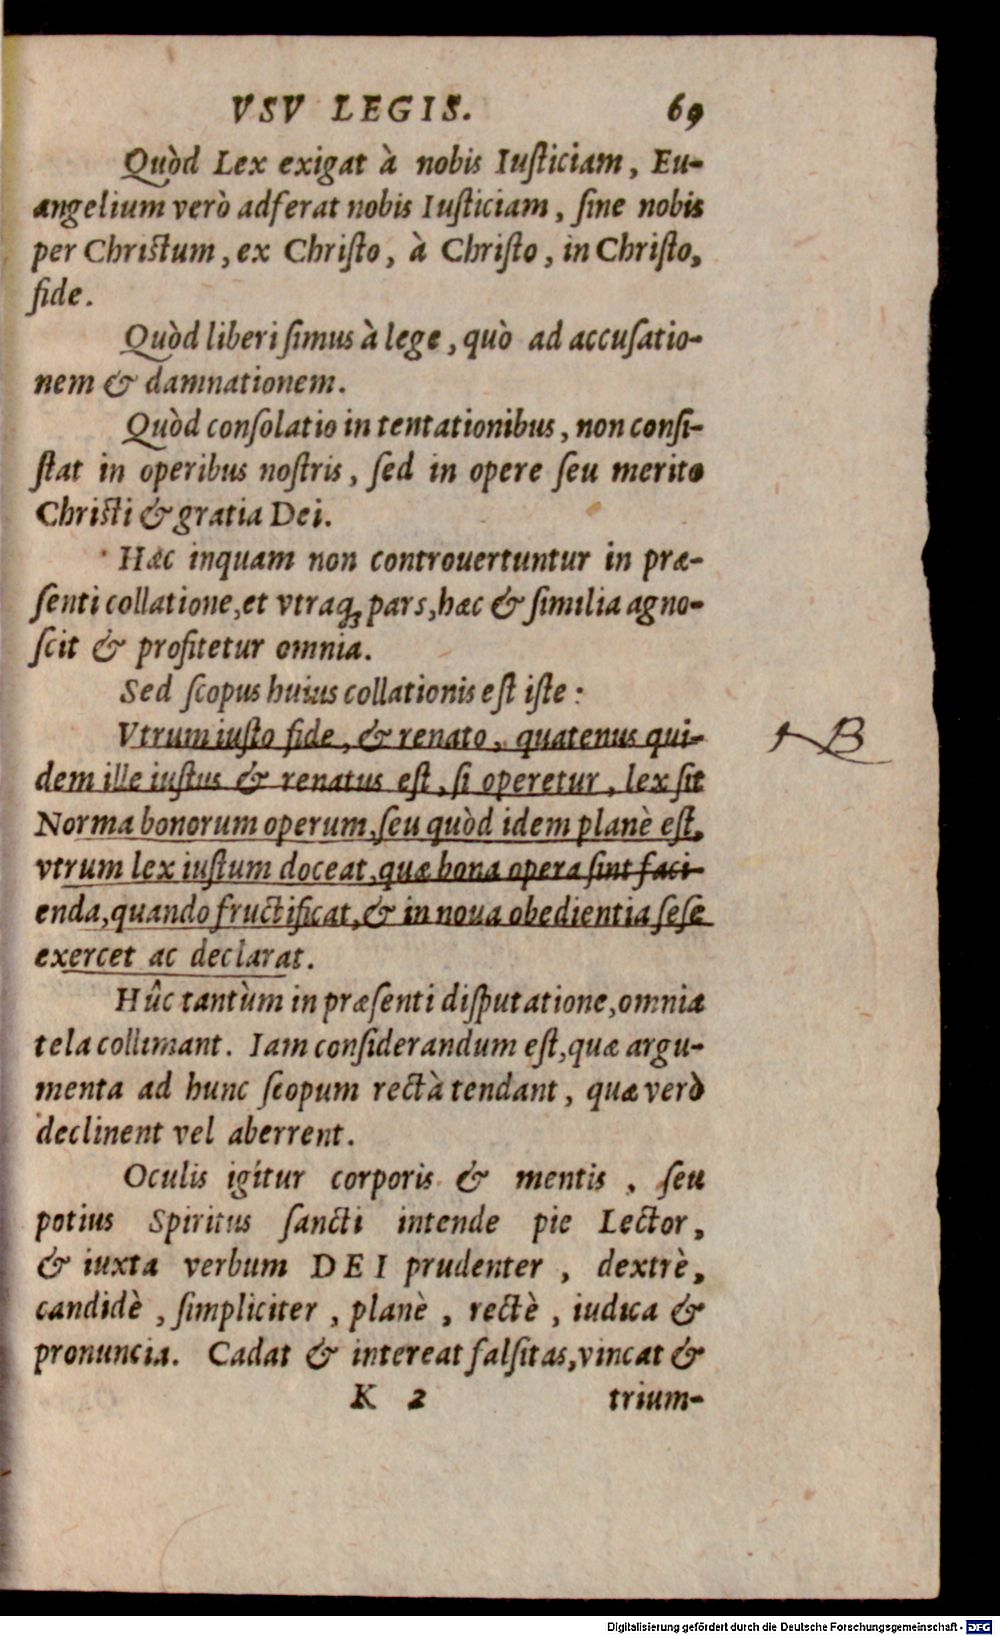 VSV LEGIS. 69
Quòd Lex exigat à nobis Iusticiam, Eu-
angelium verò adferat nobis Iusticiam, sine nobis
per Christum, ex Christo, à Christo, in Christo,
fide.
Quòd liberi simus à lege, quò ad accusatio-
nem & damnationem.
Quòd consolatio in tentationibus, non consi-
stat in operibus nostris, sed in opere seu merito
Christi & gratia Dei.
Hæc inquam non controuertuntur in præ-
senti collatione, et vtraqꝫ pars, hæc & similia agno-
scit & profitetur omnia.
Sed scopus huius collationis est iste:
Vtrum iusto fide, & renato, quatenus qui-
dem ille iustus & renatus est, si operetur, lex sit
Norma bonorum operum, seu quòd idem planè est,
vtrum lex iustum doceat, quæ bona opera sint faci-
enda, quando fructificat, & in noua obedientia sese
exercet ac declarat.
NB
Hûc tantùm in præsenti disputatione, omnia
tela collimant. Iam considerandum est, quæ argu-
menta ad hunc scopum rectà tendant, quæ verò
declinent vel aberrent.
Oculis igitur corporis & mentis, seu
potius Spiritus sancti intende pie Lector,
& iuxta verbum DEI prudenter, dextrè,
candidè, simpliciter, planè, rectè, iudica &
pronuncia. Cadat & intereat falsitas, vincat &
K 2 trium-
Digitalisierung gefördert durch die Deutsche Forschungsgemeinschaft - DFG